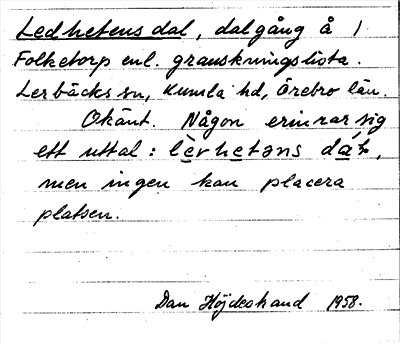 Ledhetens dal, dalgång å 1
Folketorp enl. granskningslista.
Lerbäcks sn, Kumla hd, Örebro län.
Okänt. Någon erinrar sig
ett uttal: lèrhetəns dáɫ,
men ingen kan placera
platsen.
Dan Höjdestrand 1958.